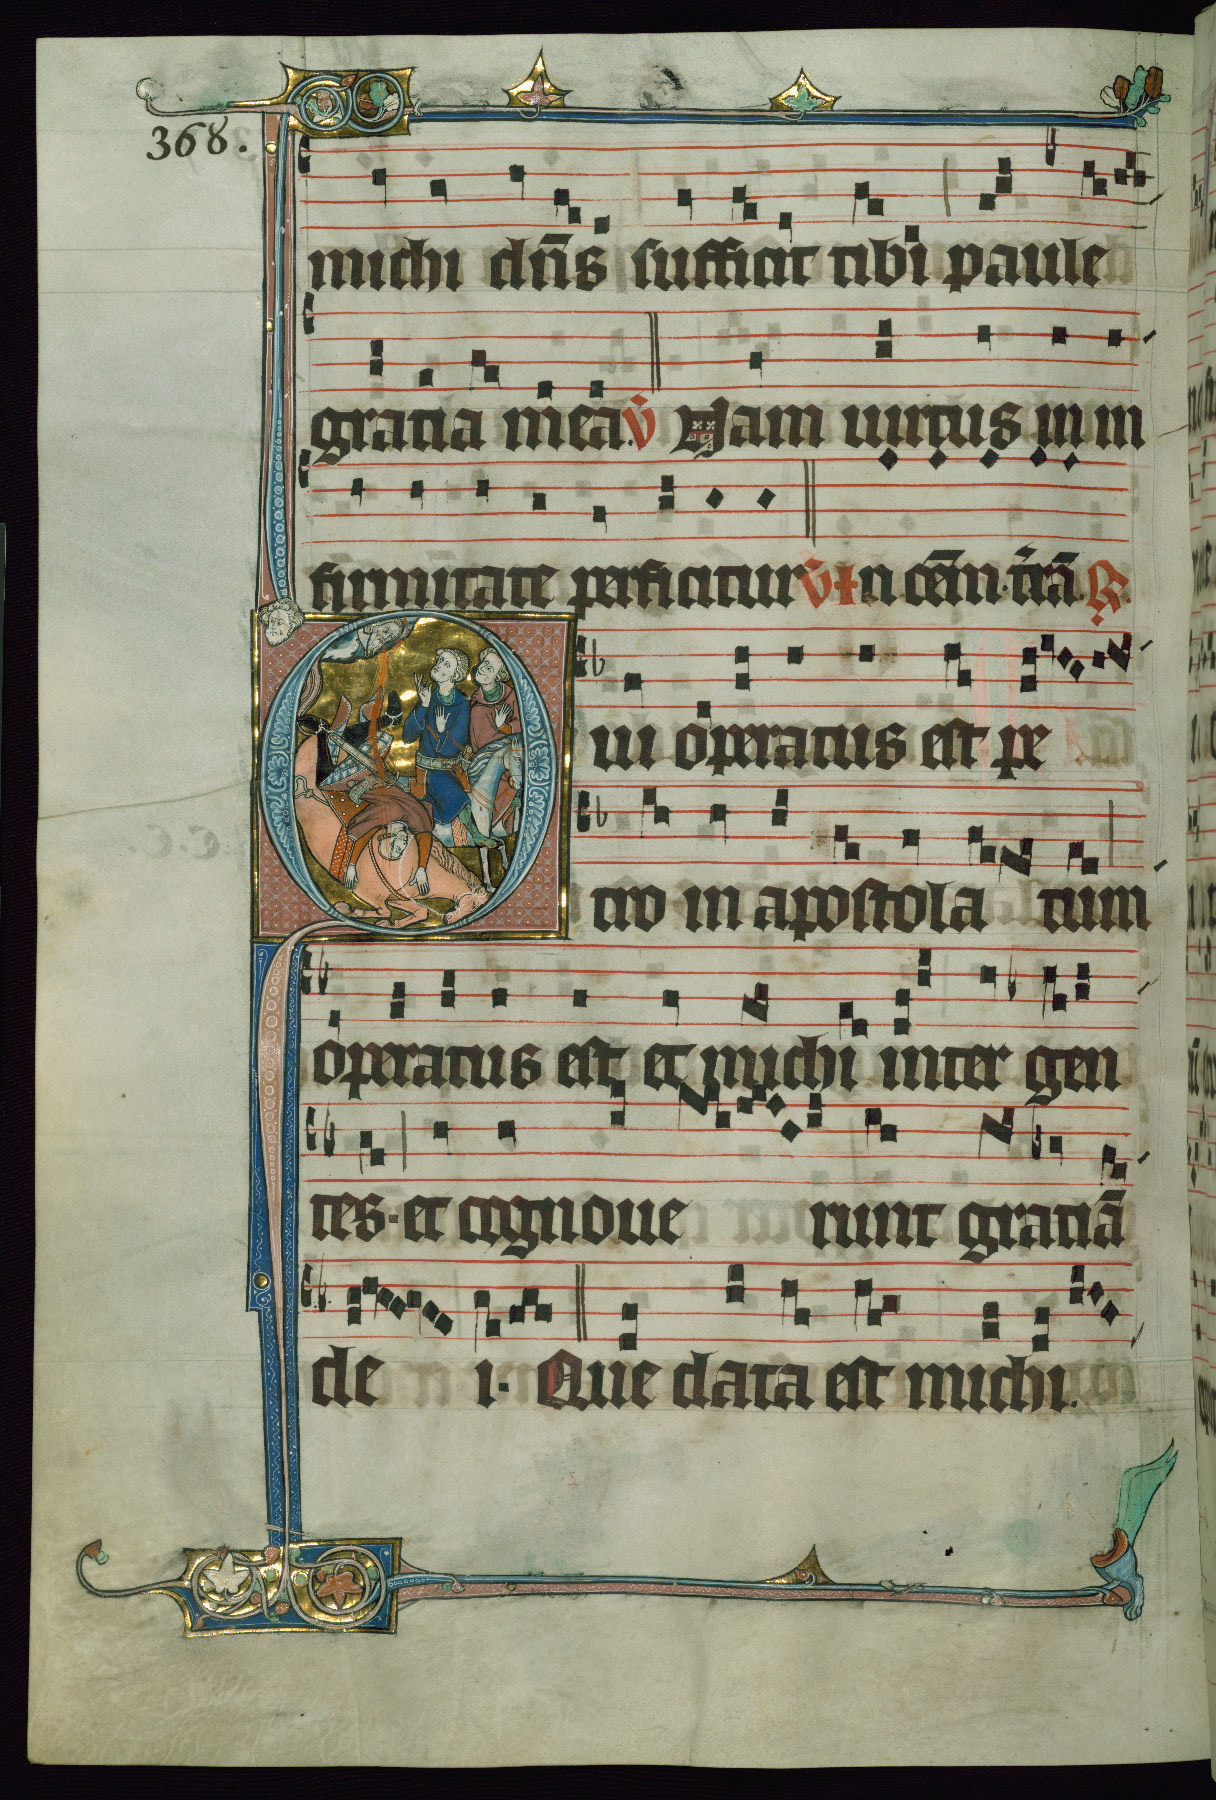 368.
michi dn̄s sufficit tibi paule
gratia mea. v̄ Nam uirtus in in
firmitate perficitur v̄ In cēm. tr̄ā R.
Qui operatus est pe
tro in apostola tum
operatus est et michi inter gen
tes. et cognoue runt gratiā
de i. Que data est michi.